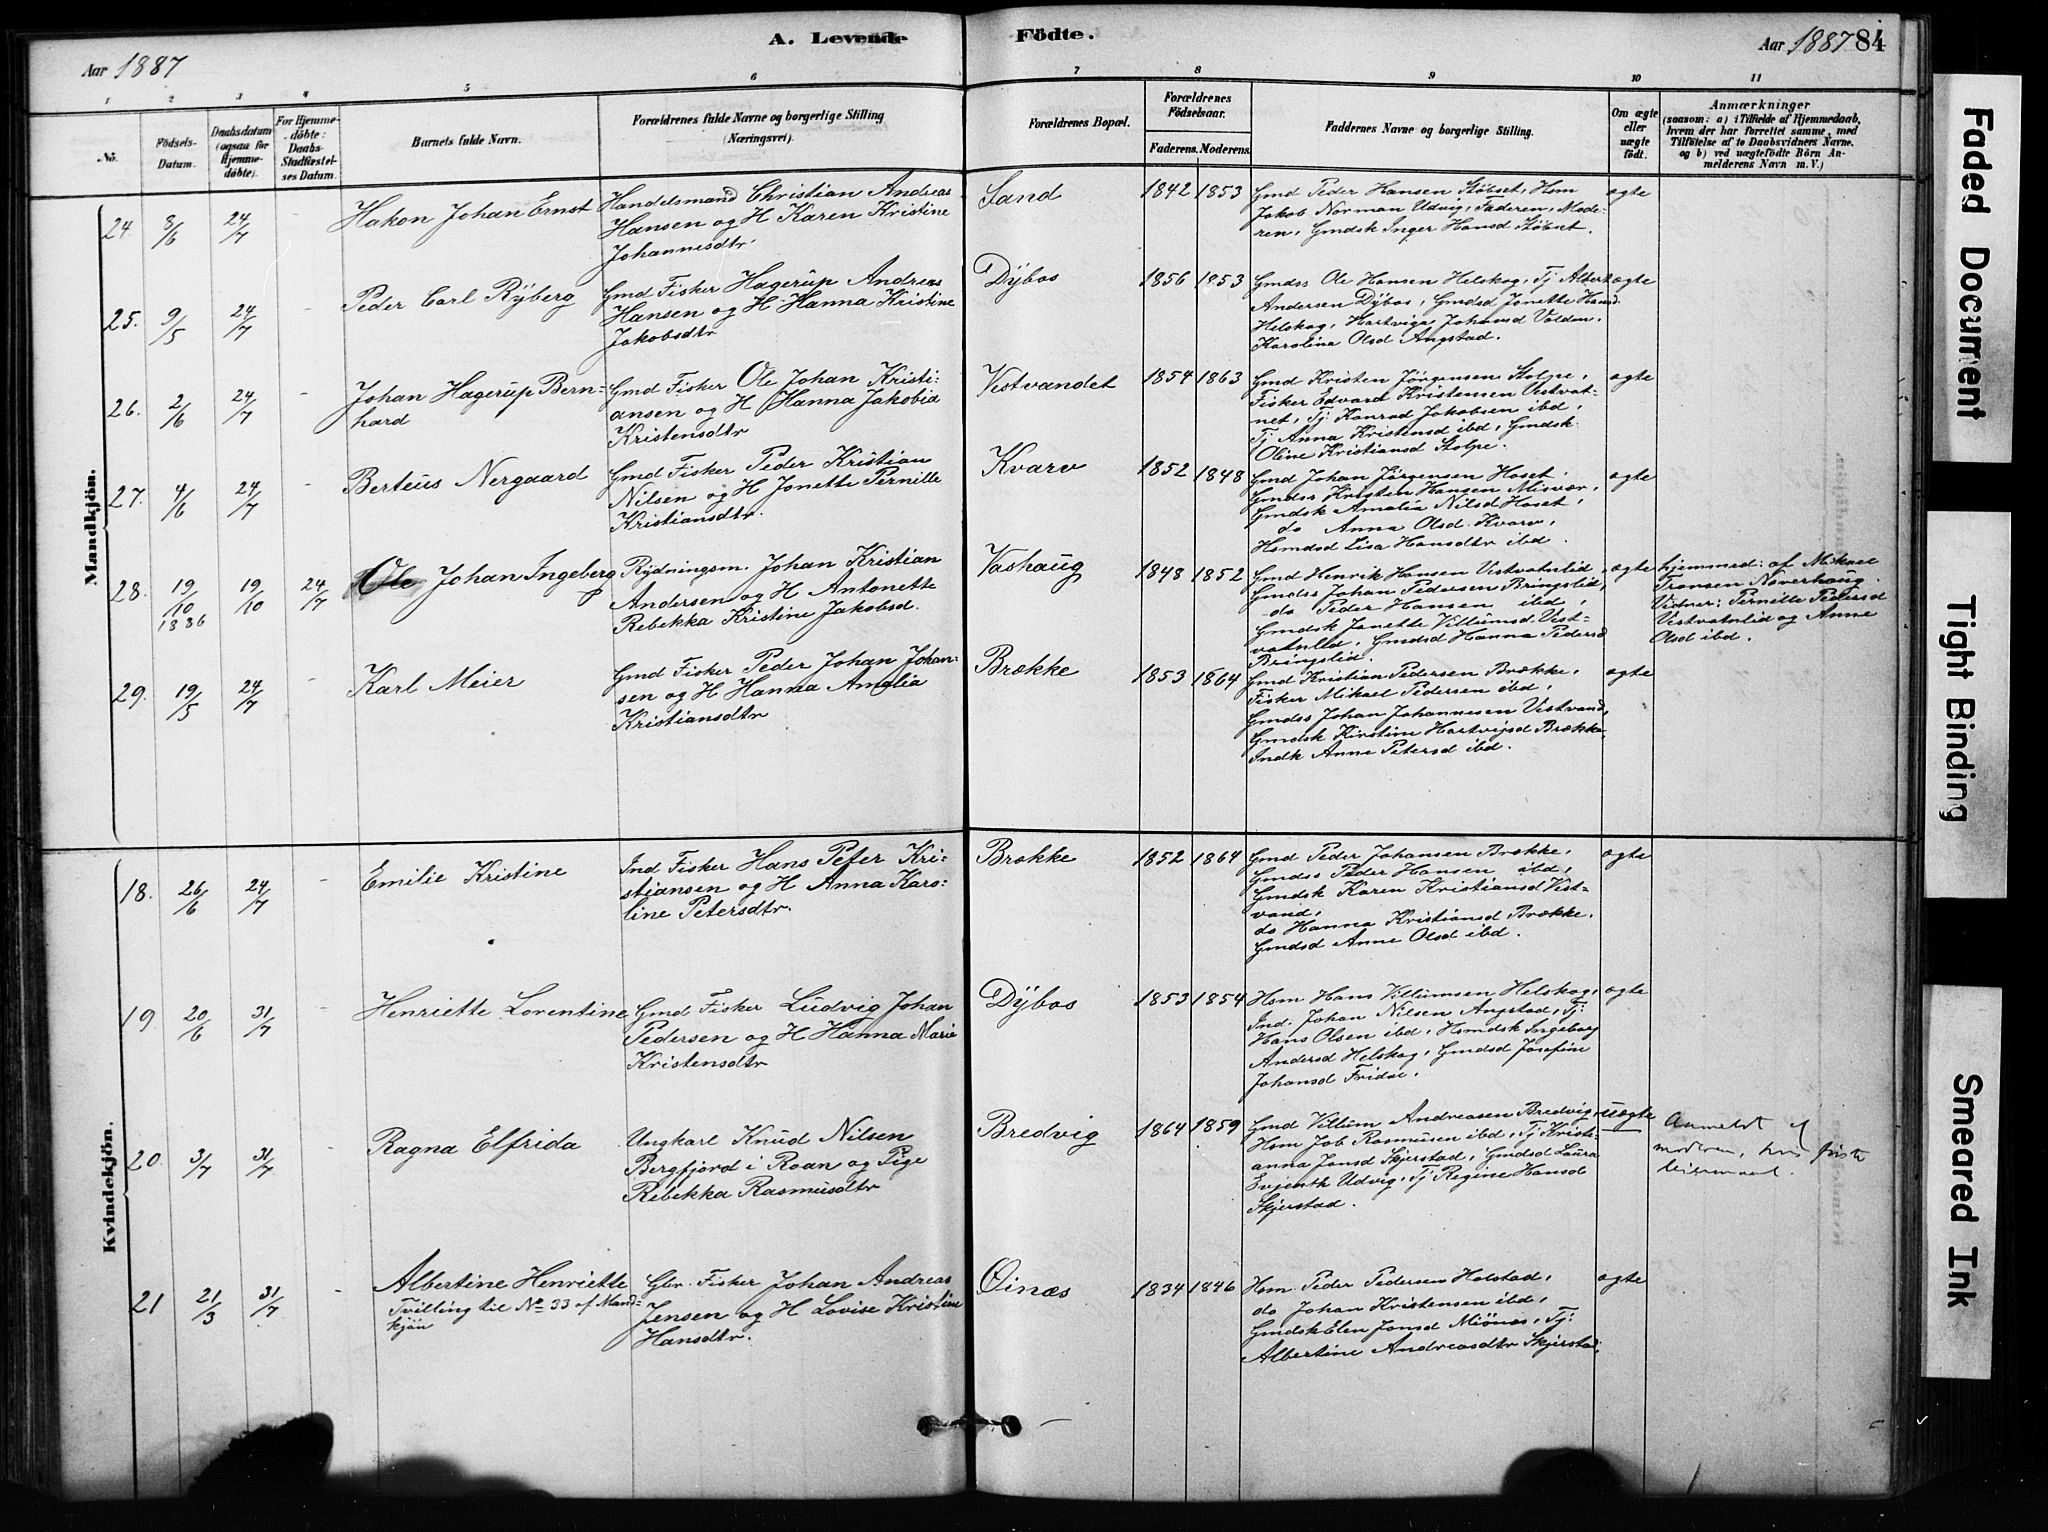 A. Levende Födte.
Aar 1887
Aar 1887 84
1 2 3 4 5 6 7 8 9 10 11
No.
Födsels-
Datum.
Daabsdatum
(ogsaa for
Hjemme-
döbte).
For Hjemme-
döbte:
Daabs-
Stadfæstel-
ses Datum.
Barnets fulde Navn.
Forældrenes fulde Navne og borgerlige Stilling
(Næringsvei).
Forældrenes Bopæl.
Forældrenes
Födselsaar.
Faderens. Moderens.
Faddernes Navne og borgerlige Stilling.
Om ægte
eller
uægte
födt.
Anmærkninger
(saasom: a) i Tilfælde af Hjemmedaab,
hvem der har forrettet samme, med
Tilföielse af to Daabsvidners Navne,
og b) ved uægtefödte Börn An-
melderens Navn m. V.)
Mandkjön.
24. 8/6 24/7 -
Hakon Johan Ernst
Handelsmand Christian Andreas
Hansen og H Karen Kristine
Johannesdtr
Sand
1842 1853
Gmd Peder Hansen Stöbset, Hsm
Jakob Norman Udvig, Faderen, Mode-
ren, Gmdsk Inger Hansd Stöbset.
ægte
25. 9/5 24/7 -
Peder Carl Ryberg
Gmd Fisker Hagerup Andreas
Hansen og H Hanna Kristine
Jakobsdtr
Dybos
1856 1853
Gmdss Ole Hansen Helskog, Tj Albert
Andersen Dybos, Gmdsd Jonette Hansd
Helskog, Hartviga Johansd Valden,
Karolina Olsd Angstad.
ægte
26. 2/6 24/7 -
Johan Hagerup Bern-
hard
Gmd Fisker Ole Johan Kristi-
ansen og H Hanna Jakobia
Kristensdtr
Vestvandet
1854 1863
Gmd Kristen Jörgensen Stolpe,
Fisker Edvard Kristensen Vestvat-
net, Tj Konrad Jakobsen ibd,
Tj Anna Kristensd ibd, Gmdsk
Oline Kristiansd Stolpe.
ægte
27. 4/6 24/7 -
Berteus Nergaard
Gmd Fisker Peder Kristian
Nilsen og H Jonette Pernille
Kristiansdtr.
Kvarv
1852 1848
Gmd Johan Jörgensen Hoset,
Gmdss Kristen Hansen Misvær,
Gmdsk Amalia Nilsd Hoset,
do Anna Olsd Kvarv,
Hsmdsd Lisa Hansdtr ibd.
ægte
28. 19/10 1886 19/10 24/7
Ole Johan Ingeberg
Rydningsm. Johan Kristian
Andersen og H Antonette
Rebekka Kristine Jakobsd.
Vashaug
1848 1852
Gmd Henrik Hansen Vestvatnlid,
Gmdss Johan Pedersen Bringslid,
do Peder Hansen ibd,
Gmdsk Janette Villumsd Vest-
vatnlid, Gmdsd Hanna Pedersd
Bringslid.
ægte
hjemmed: af Mikael
Transen Naverhaug
Vidner: Pernille Pedersd
Vestvatnlid og Anne
Olsd ibd.
29. 19/5 24/7 -
Karl Meier
Gmd Fisker Peder Johan Johan-
sen og H Hanna Amalia
Kristiansdtr
Brække
1853 1864
Gmd Kristian Pedersen Brække,
Fisker Mikael Pedersen ibd,
Gmdss Johan Johannesen Vestvand,
Gmdsk Kirstine Hartvigsd Brække,
Indk Anne Petersd ibd.
ægte
Kvindekjön.
18. 26/6 24/7 -
Emilie Kristine
Ind Fisker Hans Peter Kri-
stiansen og H Anna Karo-
line Petersdtr.
Brække
1852 1864
Gmd Peder Johansen Brække,
Gmdss Peder Hansen ibd,
Gmdsk Karen Kristiansd Vest-
vand,
do Hanna Kristiansd Brække,
Gmdsd Anne Olsd ibd.
ægte
19 20/6 31/7 -
Henriette Lorentine
Gmd Fisker Ludvig Johan
Pedersen og H Hanna Marie
Kristensdtr
Dybos
1853 1854
Hsm Hans Villumsen Helskog,
Ind. Johan Nilsen Angstad, Tj:
Hans Olsen ibd, Hsmdsk Ingeborg
Andersd Helskog, Gmdsd Josefine
Johansd Fridal.
ægte
20 3/7 31/7 -
Ragna Elfrida
Ungkarl Knud Nilsen
Bergfjord i Roan og Pige
Rebekka Rasmusdtr
Bredvig
1864 1859
Gmd Villum Andreasen Bredvig,
Hsm Job Rasmusen ibd, Tj Kristi-
anna Jonsd Skjerstad, Gmdsd Laura
Evjenth Udvig, Tj Regine Hansd
Skjerstad.
uægte
Anmeldt af
moderen, hos første
leiermaal.
21 21/3 31/7 -
Albertine Henriette
Tvilling til No 33 af Mand-
kjön
Gbr. Fisker Johan Andreas
Jensen og H Lovise Kristine
Hansdtr.
Öinæs
1834 1846
Hsm. Peder Pedersen Holstad,
do Johan Kristensen ibd,
Gmdsk Elen Jonsd Miönæs, Tj:
Albertine Andreasdtr Skjerstad.
ægte
Faded Document
Tight Binding
Smeared Ink